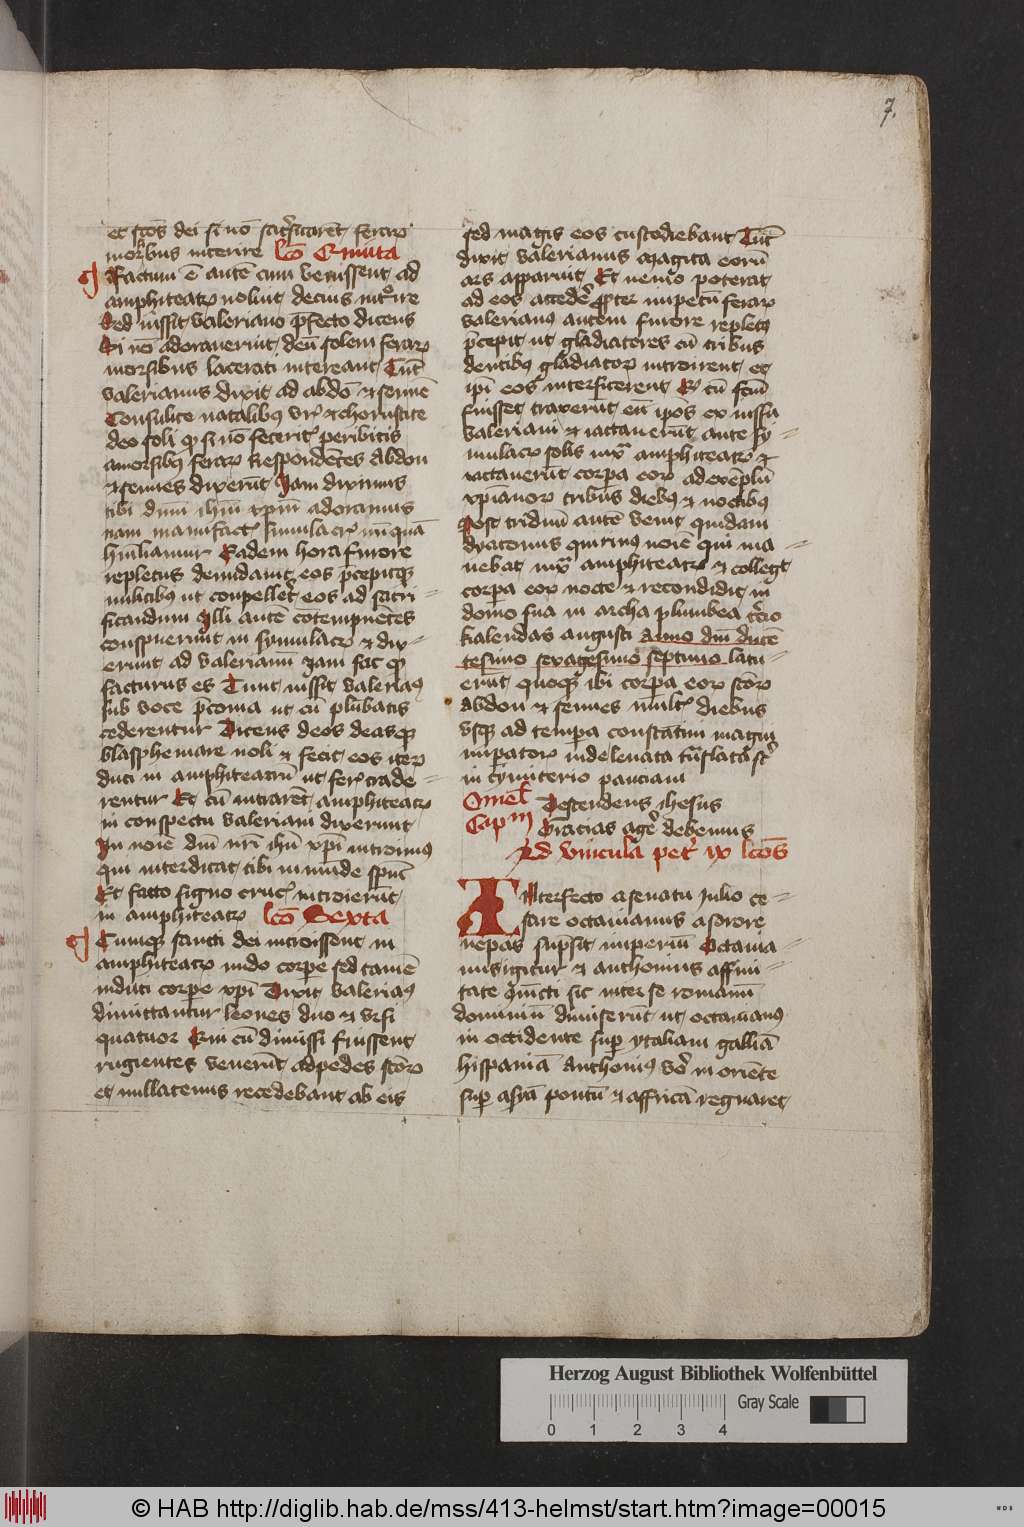 7.
et sctōs dei si nō sacrificarēt feraꝝ
morsibus interire lcō Quinta
Factum ē autē cum venissent ad
amphiteatꝝ noluit decius introire
Sed iussit valeriano p̄fecto dicens
Si nō adoraverint deū solem feraꝝ
morsibus lacerati intereant Tūc
valerianus dixit ad abdō et sennē
Consulite natalibꝰ vr̄is
deo soli qꝫ si nō fecerit peribitis
a morsibꝰ feraꝝ Respondētes Abdon
et sennes dixerūt Jam diximus
tibi dnm̄ ihm̄ xp̄m adoramus
nam manufactis simulacris nūquā
humiliamur Eadem hora furore
repletus denudavit eos p̄cepitqꝫ
militibꝰ ut conpellerēt eos ad sacri=
ficandum Illi autē cōtempnētes
conspuerunt in symulacꝝ et dix=
erunt ad valerianū iam fac qꝫ
facturus es Tunc iussit valerianꝰ
sub voce p̄conia ut cū plūbatis
cederentur Dicens deos deasqꝫ
blasphemare noli et fecit eos iteꝝ
duci in amphiteatrū ut feris trade=
rentur Et cū intrarēt amphiteatꝝ
in conspectu valeriani dixerunt
In noīe dnī nr̄i ihū xp̄i introimus
qui interdicat tibi inmunde spūs
Et facto signo crucis introierūt
in amphiteatꝝ lcō Sexta
Cumqꝫ sancti dei introissent in
amphiteatꝝ nudo corpe sed tamē
induti corpe xp̄i Dixit valerianꝰ
dimittantur leones duo et ursi
quatuor Qui cū dimissi fuissent
rugientes venerūt ad pedes sctōꝝ
et nullatenus recedebant ab eis
sed magis eos custodiebant Tūc
dixit valerianus Magica eoꝝ
ars apparuit Et nemo poterat
ad eos accedē ꝓpter impetū feraꝝ
valerianꝰ autem furore repletꝰ
p̄cepit ut gladiatores cū tribus
dentibꝰ gladiatoꝝ introirent et
ip̄i eos interficerent Qꝫ cū fcm̄
fuisset traxerūt eū ipos ex iussu
valeriani et iactaverūt ante sy=
mulacꝝ solis iux̄ amphiteatꝝ et
iactaverūt corpa eoꝝ ad exēplū
xp̄ianoꝝ tribus diebꝰ et noctibꝰ
Post triduū autē venit quidam
dyaconus quirinꝰ noīe qui ma=
nebat iux̄ amphiteatꝝ et collegit
corpa eoꝝ nocte et recondidit in
domo sua in archa plumbea tercio
kalendas augusti Anno dnī ducē
tesimo sexagesimo septimo latu=
erūt quoqꝫ ibi corpa eoꝝ sctōꝝ
abdon et sennes multis diebus
usqꝫ ad tempa constātini magni
imperatoris inde levata trāslata st̄
in cymiterio panciani
Omel Descendens ihesus
Capm Gracias agere debemus
Ad vincula petri ix lcōs
INterfecto a senatu Julio ce=
sare octavianus a sorore
nepos supsit imperiū Octavia=
nus igitur et anthonius affini=
tate iūcti sic inter se romanū
dominiū diviserūt ut octavianꝰ
in occidente supr ytaliam galliā
hispaniā Anthonius vero in oriēte
supr asyā pontū et affricā regnaret
Herzog August Bibliothek Wolfenbüttel
Gray Scale
0 1 2 3 4
© HAB http://diglib.hab.de/mss/413-helmst/start.htm?image=00015
WDB